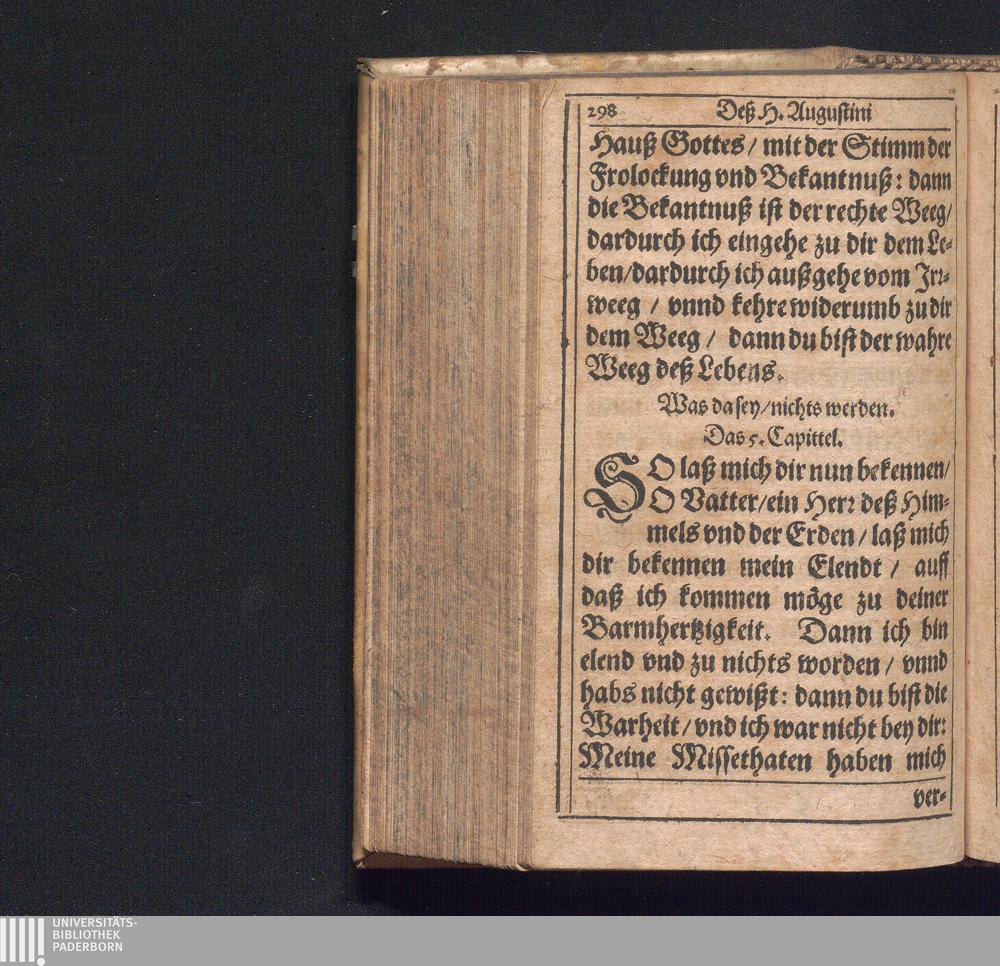 298 Deß H. Augustini
Hauß Gottes / mit der Stimm der
Frolockung vnd Bekantnuß: dann
die Bekantnuß ist der rechte Weeg/
dardurch ich eingehe zu dir dem Le-
ben/dardurch ich außgehe vom Irr-
weeg / vnnd kehre widerumb zu dir
dem Weeg / dann du bist der wahre
Weeg deß Lebens.
Was da sey/nichts werden.
Das 5. Capittel.
SO laß mich dir nun bekennen/
O Vatter/ein Herr deß Him-
mels vnd der Erden / laß mich
dir bekennen mein Elendt / auff
daß ich kommen möge zu deiner
Barmhertzigkeit. Dann ich bin
elend vnd zu nichts worden / vnnd
habs nicht gewißt: dann du bist die
Warheit / vnd ich war nicht bey dir:
Meine Missethaten haben mich
ver-
UNIVERSITÄTS-
BIBLIOTHEK
PADERBORN